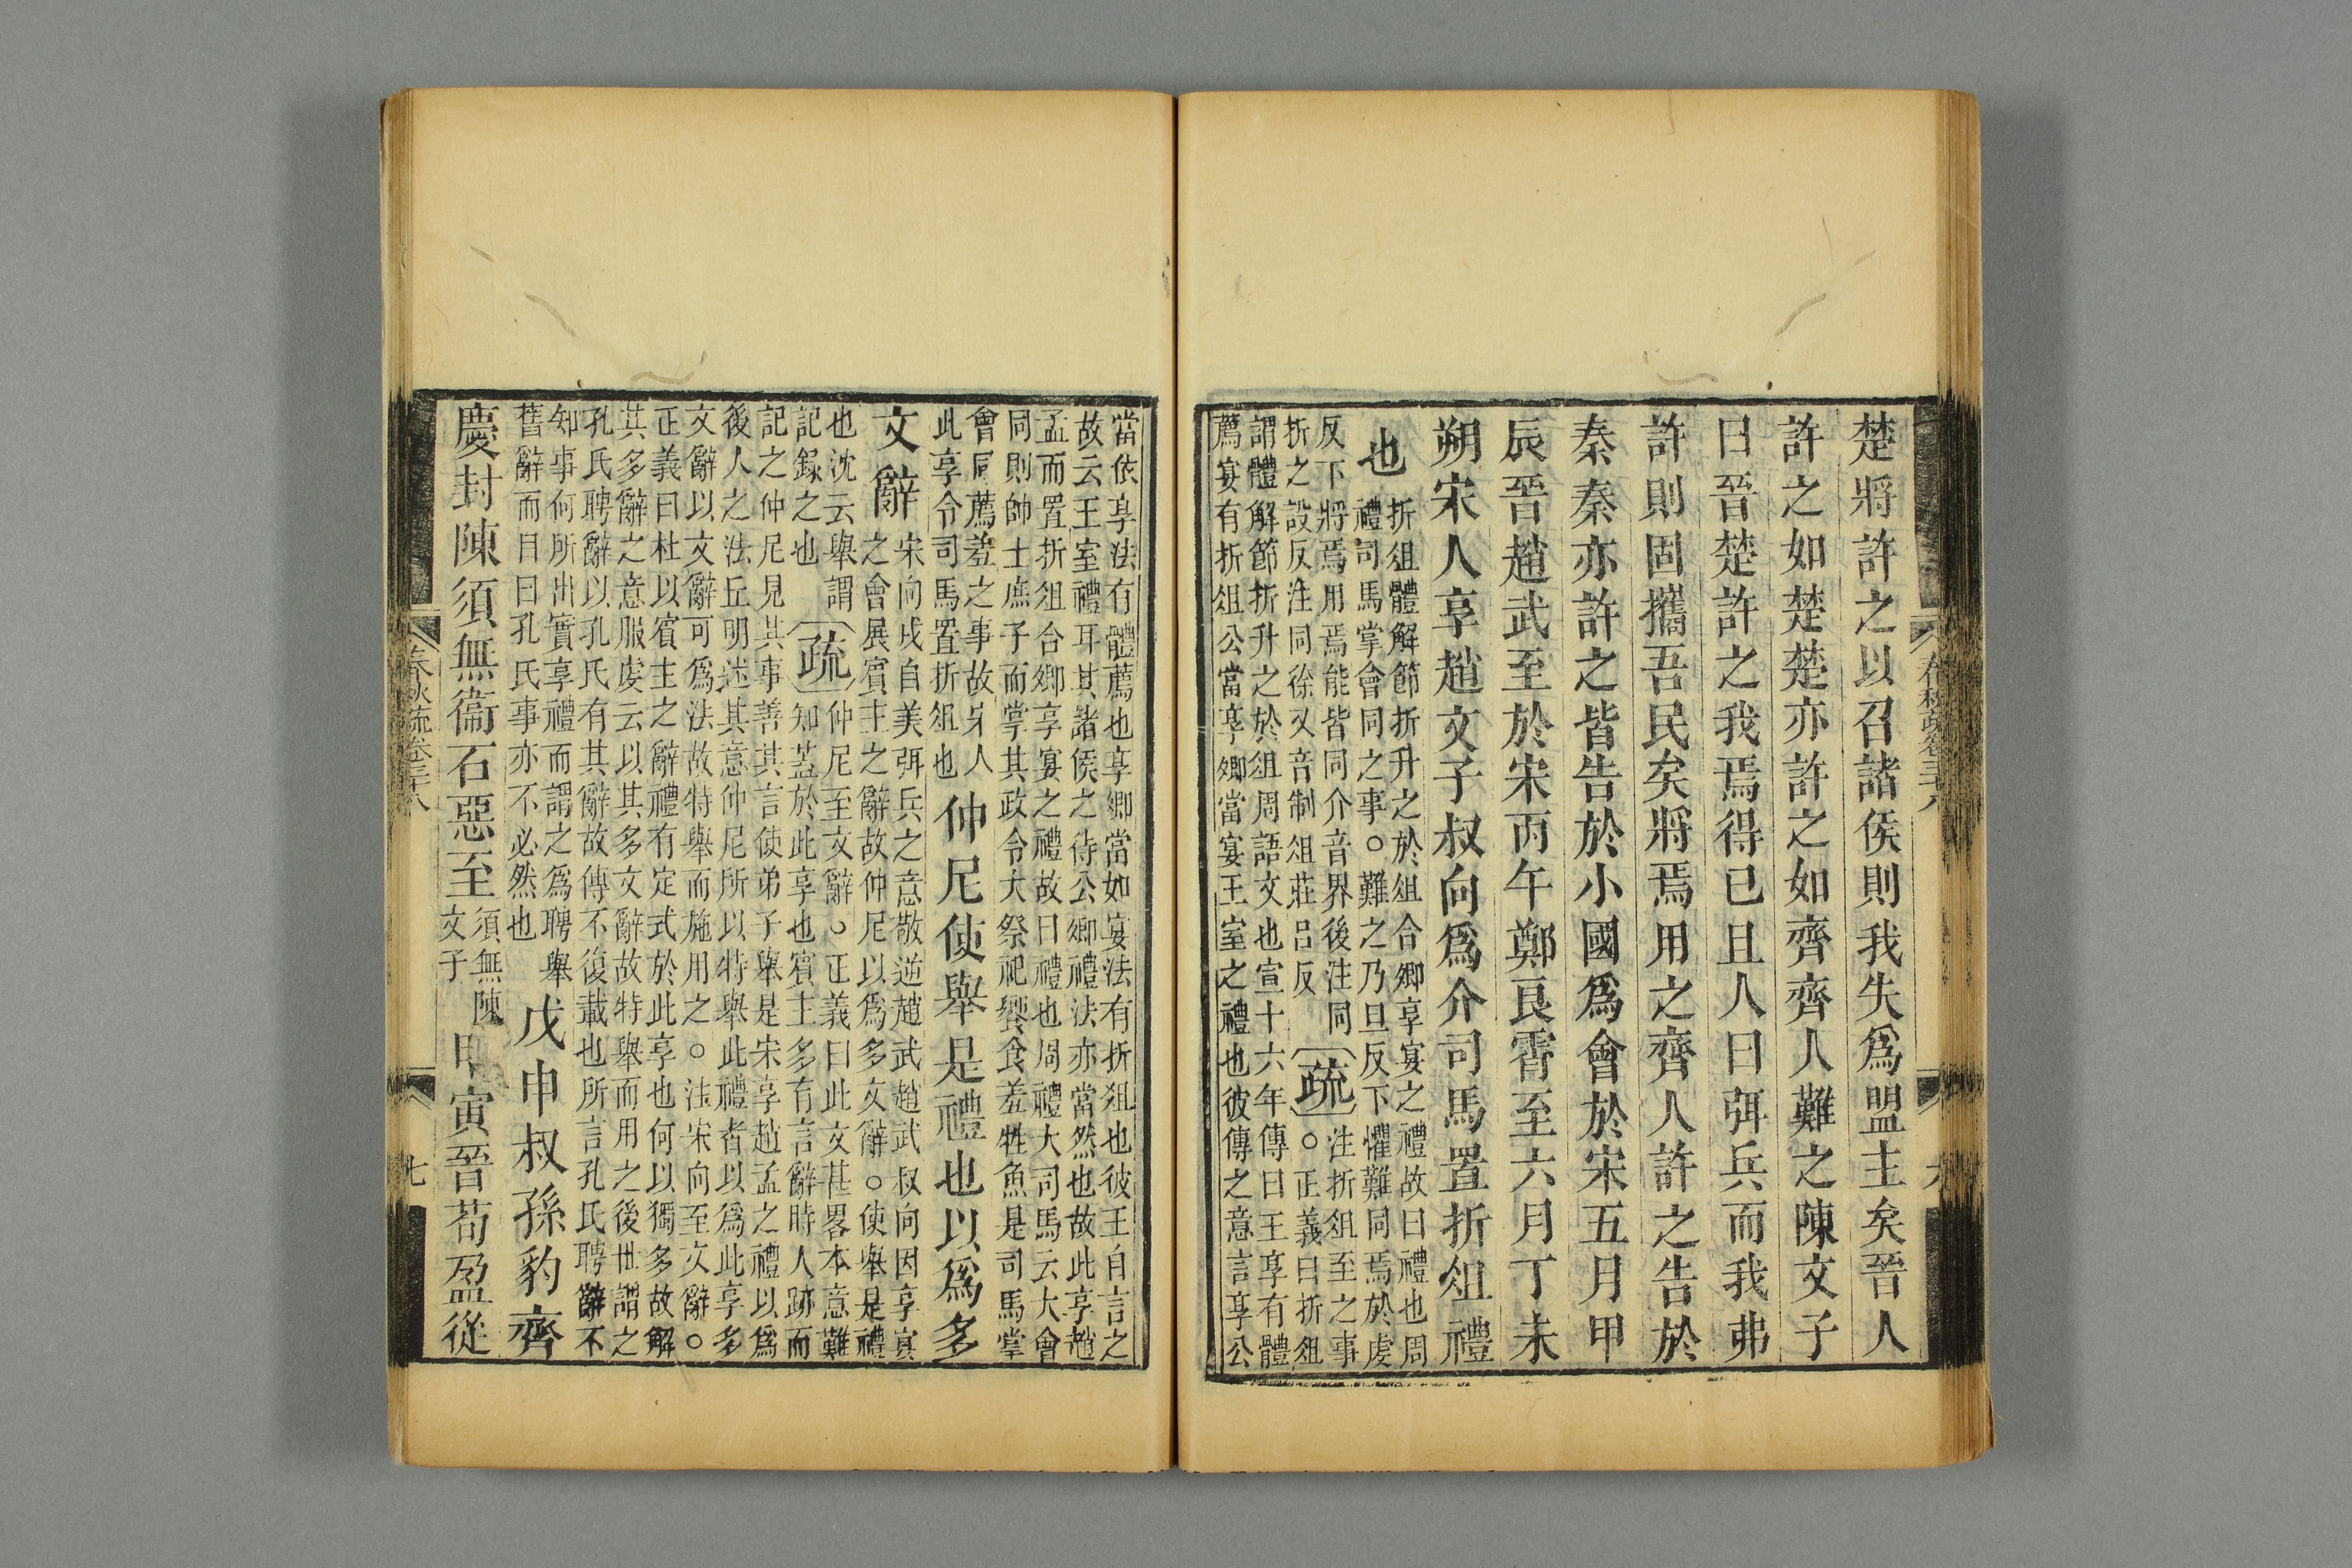 楚將許之以召諸侯則我失爲盟主矣晉人
許之如楚楚亦許之如齊齊人難之陳文子
曰晉楚許之我焉得已且人曰弭兵而我弗
許則固攜吾民矣將焉用之齊人許之告於
秦秦亦許之皆告於小國爲會於宋五月甲
辰晉趙武至於宋丙午鄭良霄至六月丁未
朔宋人享趙文子叔向爲介司馬置折俎禮
也
折俎體解節折升之於俎合卿享宴之禮故曰禮也周
禮司馬掌會同之事○難之乃旦反下懼難同焉於虔
反下將焉用焉能皆同介音界後注同
折之設反注同徐又音制俎莊呂反
疏
注折俎至之事
○正義曰折俎
謂體解節折升之於俎周語文也宣十六年傳曰王享有體
薦宴有折俎公當享卿當宴王室之禮也彼傳之意言享公
當依享法有體薦也享卿當如宴法有折俎也彼王自言之
故云王室禮耳其諸侯之待公卿禮法亦當然也故此享趙
孟而置折俎合卿享宴之禮故曰禮也周禮大司馬云大會
同則帥士庶子而掌其政令大祭祀饗食羞牲魚是司馬掌
會同薦羞之事故宋人
此享令司馬置折俎也
仲尼使舉是禮也以爲多
文辭
宋向戌自美弭兵之意敬逆趙武趙武叔向因享宴
之會展賓主之辭故仲尼以爲多文辭○使舉是禮
也沈云舉謂
記錄之也
疏
仲尼至文辭○正義曰此文甚畧本意難
知蓋於此享也賓主多有言辭時人跡而
記之仲尼見其事善其言使弟子舉是宋享趙孟之禮以爲
後人之法丘明述其意仲尼所以特舉此禮者以爲此享多
文辭以文辭可爲法故特舉而施用之○注宋向至文辭○
正義曰杜以賓主之辭禮有定式於此享也何以獨多故解
其多辭之意服虔云以其多文辭故特舉而用之後世謂之
孔氏聘辭以孔氏有其辭故傳不復載也所言孔氏聘辭不
知事何所出實享禮而謂之爲聘舉
舊辭而目曰孔氏事亦不必然也
戊申叔孫豹齊
慶封陳須無衞石惡至
須無陳
文子
甲寅晉荀盈從
春秋疏卷三十八
六
春秋疏卷三十八
七